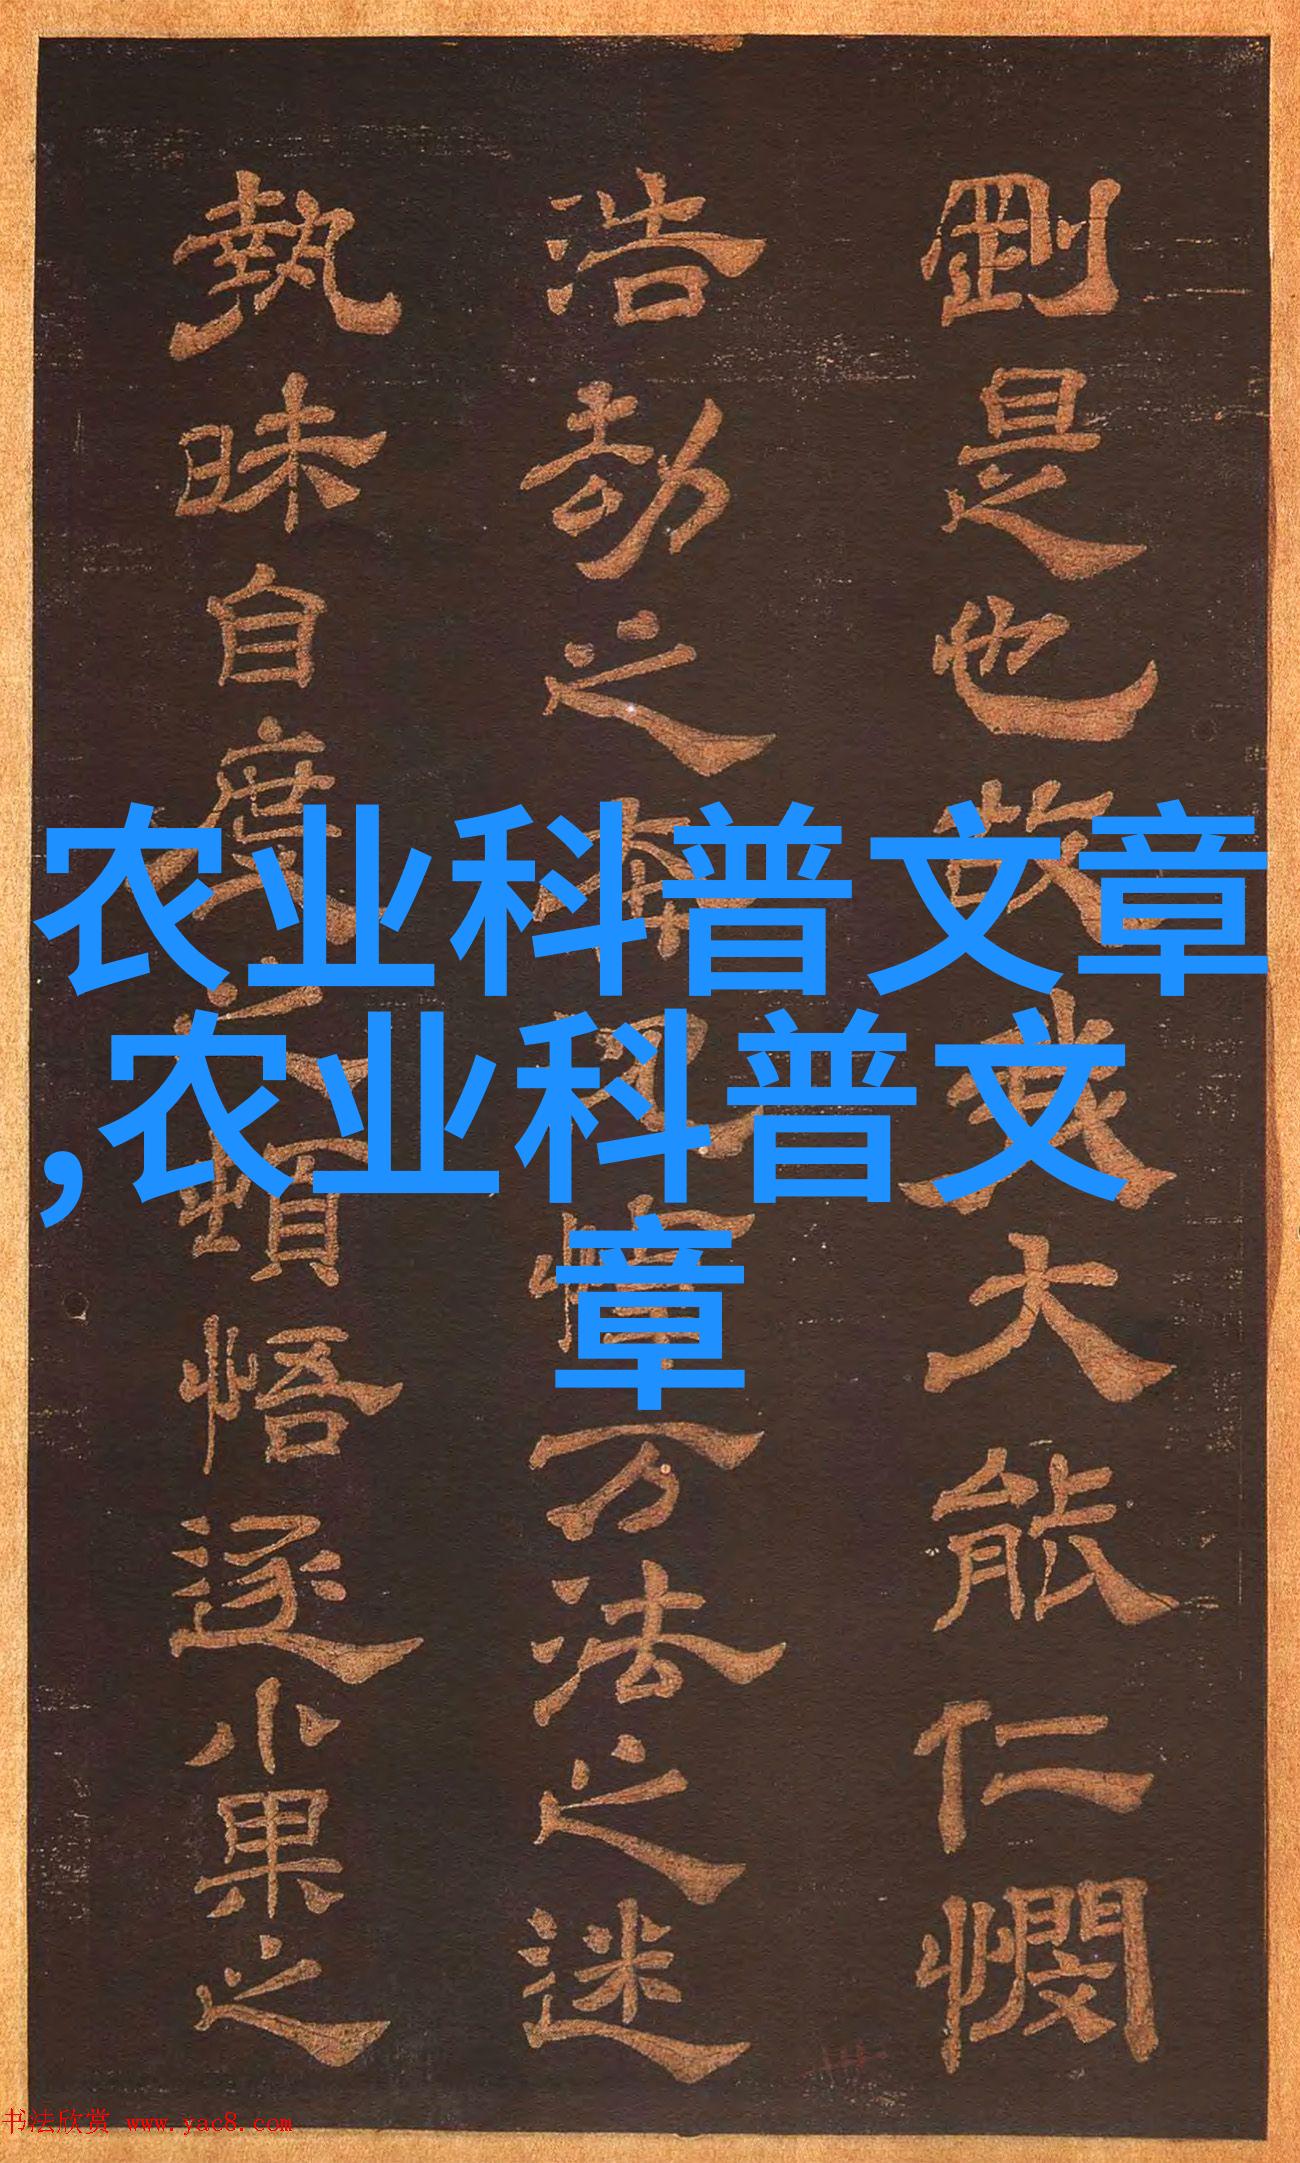 剛是也故我大能仁憫
浩劫之万法之迷
執昧自度之頓悟遂小果之
农业科普文章
,农业科普文
章
书法欣赏 www.yac8.com